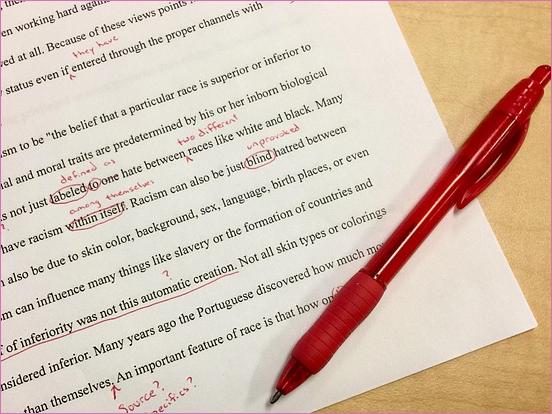 en working hard agains
ved at all. Because of these views points
they have
status even if entered through the proper channels with
ism to be "the belief that a particular race is superior or inferior to
al and moral traits are predetermined by his or her inborn biological
two different
races like white and black. Many
defined as
unprovoked
s not just labeled to one hate between
blind hatred between
among themselves
have racism within itself. Racism can also be just
n also be due to skin color, background, sex, language, birth places, or even
sm can influence many things like slavery or the formation of countries and
?
f of inferiority was not this automatic creation. Not all skin types or colorings
nsidered inferior. Many years ago the Portuguese discovered how much mo
than themselves. An important feature of race is that how on
Source?
pecifics?